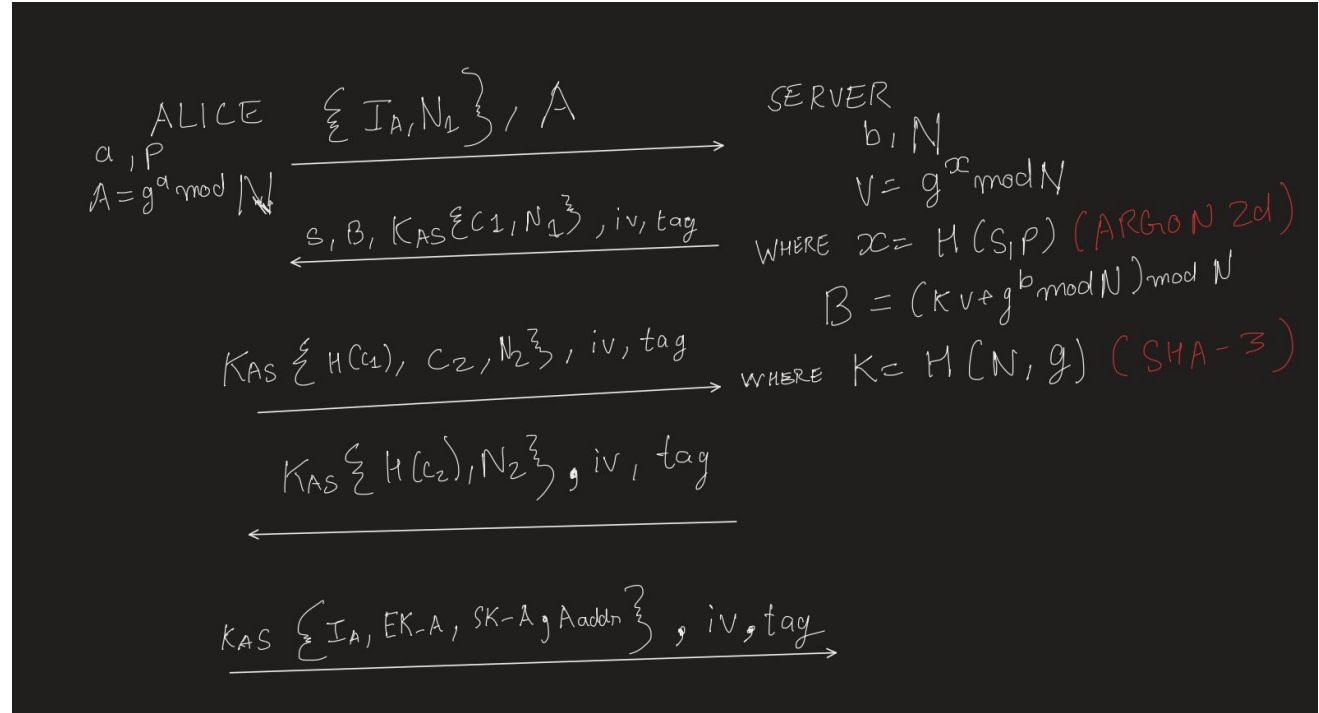 ALICE
a, P
A = g^a mod N
{ I_A, N_1 }, A
SERVER
b, N
V = g^x mod N
WHERE x = H(S, P) (ARGON 2d)
B = (KV + g^b mod N) mod N
WHERE K = H(N, g) (SHA-3)
S, B, K_AS { C1, N_1 }, iv, tag
K_AS { H(C_1), C_2, N_2 }, iv, tag
K_AS { H(C_2), N_2 }, iv, tag
K_AS { I_A, EK-A, SK-A, Aaddr }, iv, tag